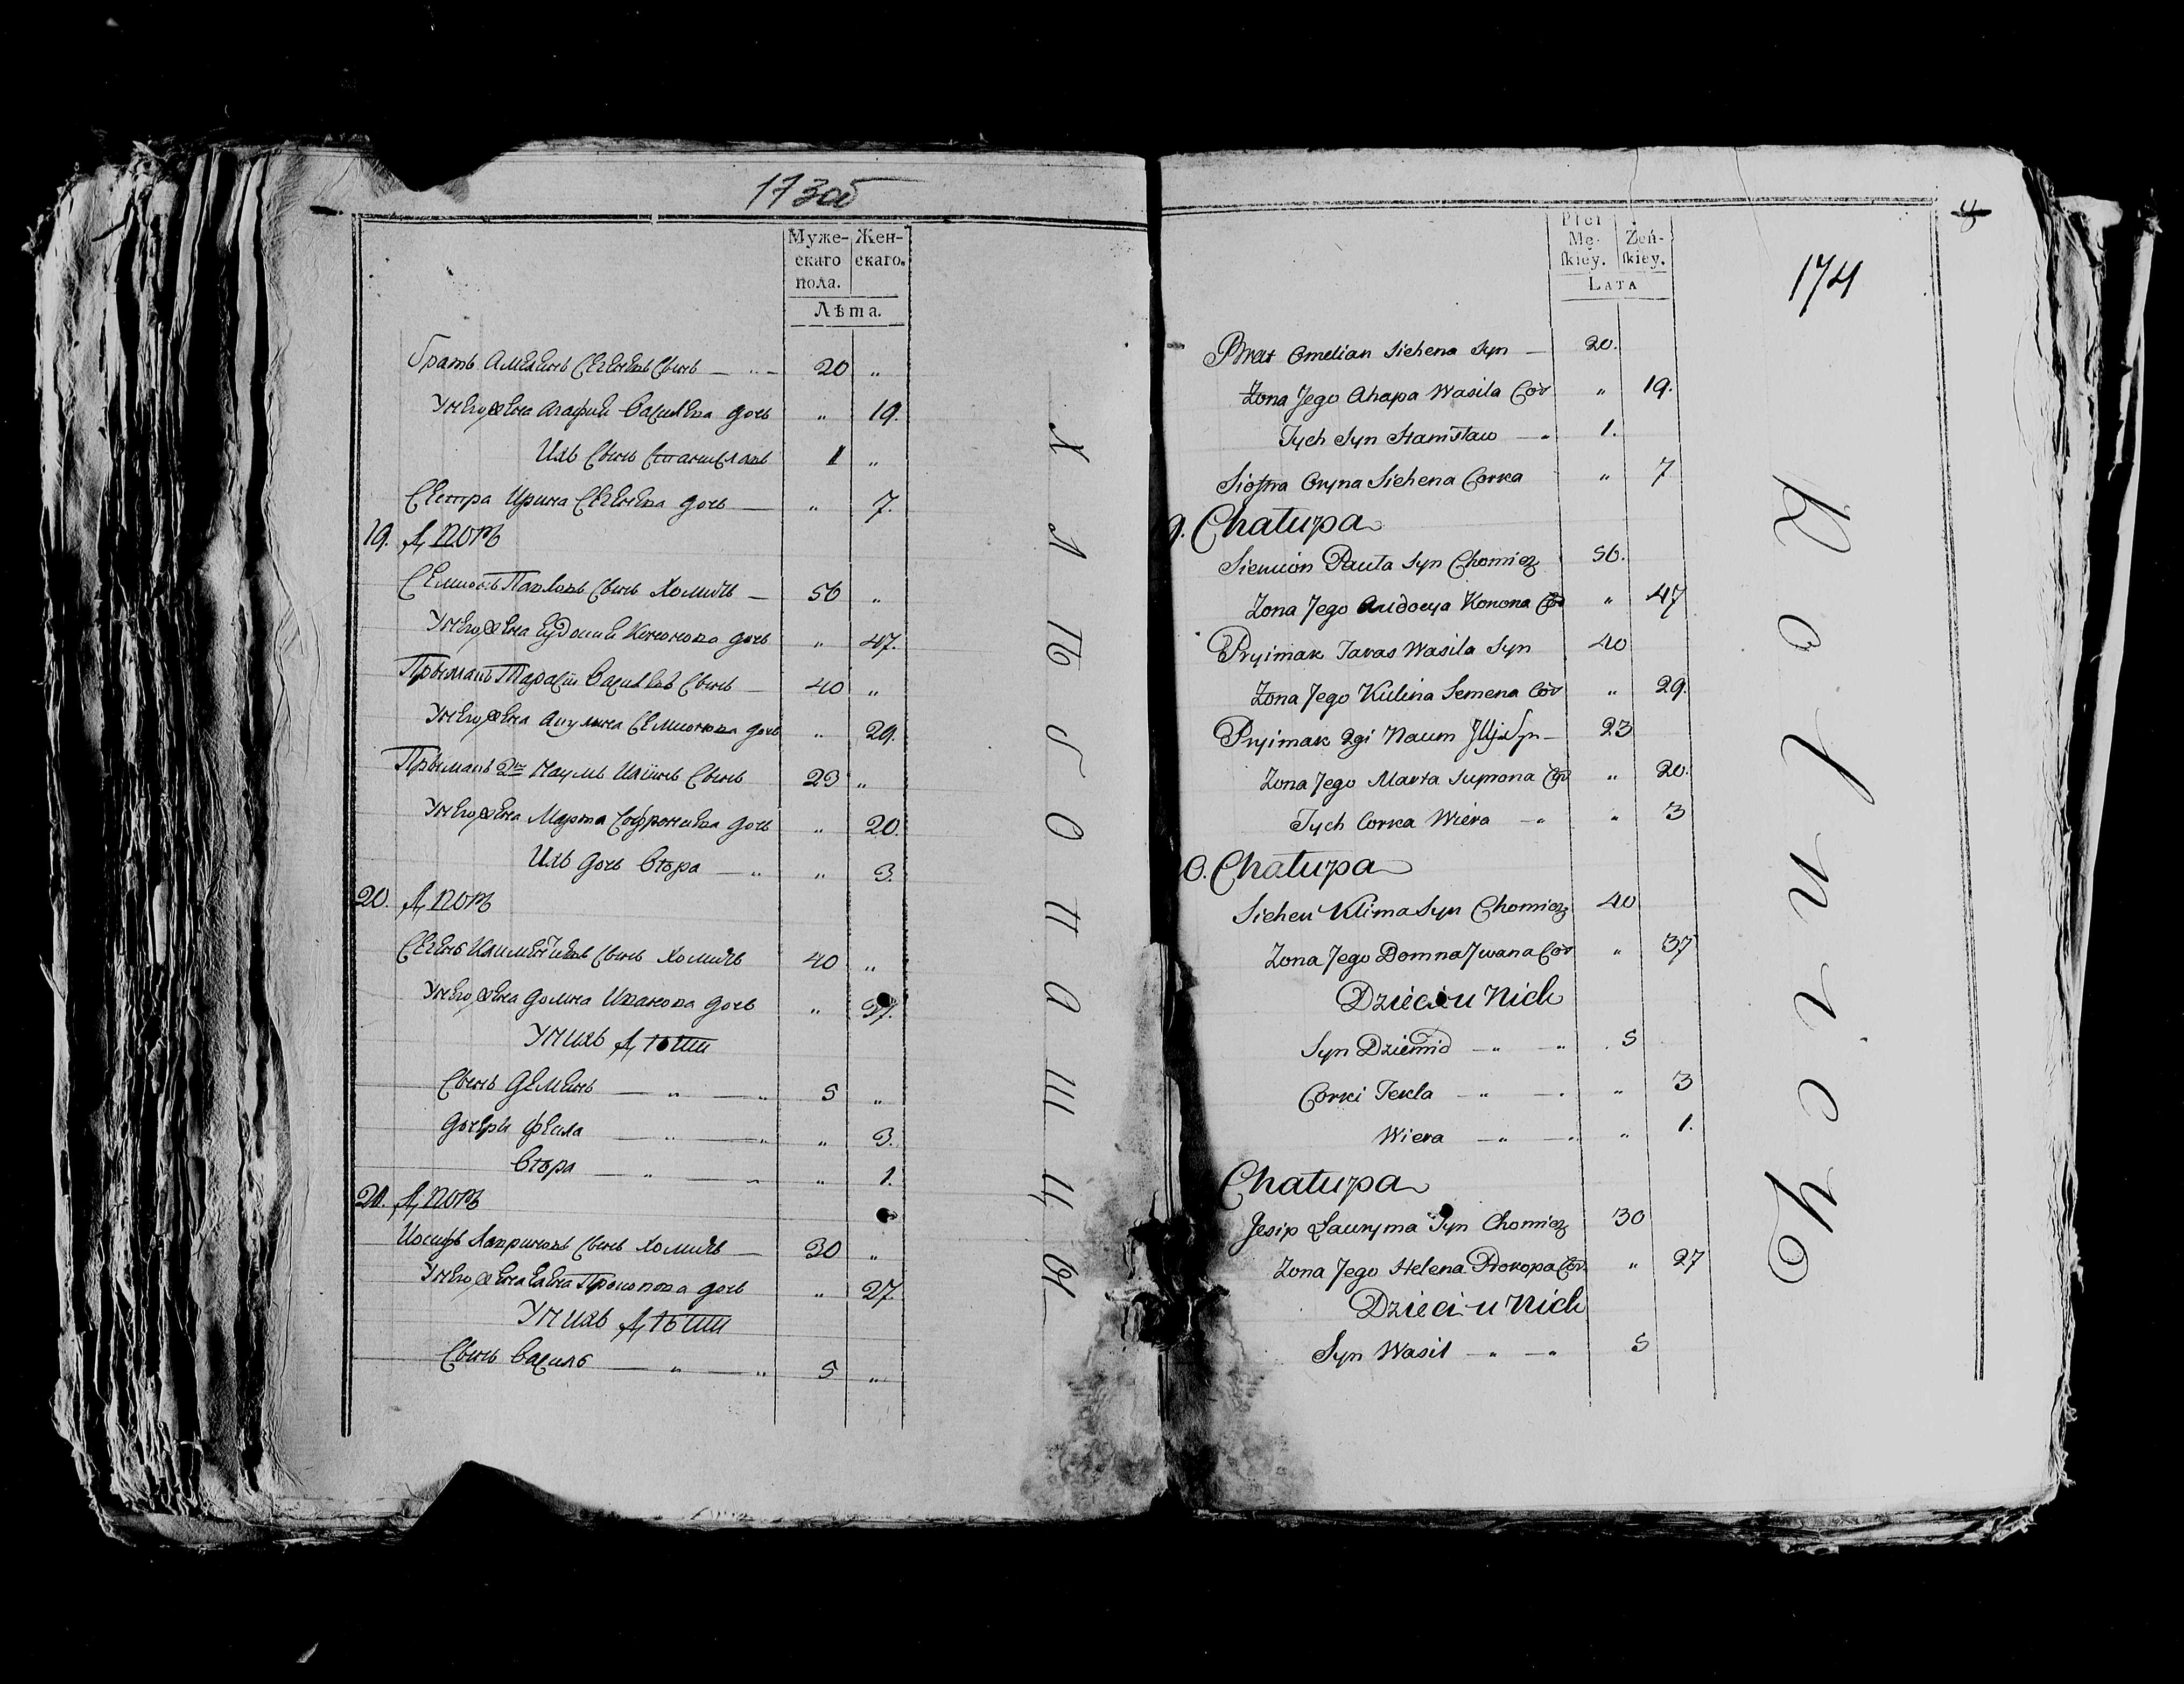 173об
Муже-скаго пола. Жен-скаго.
Лѣта.
Братъ Амелянъ Сегеневъ Сынъ 20 "
У него жена Агафия Василева дочь " 19.
Ихъ Сынъ Станиславъ 1 "
Сестра Ирина Сегенева дочь " 7.
19. Дворъ
Семионъ Павловъ Сынъ Хомичъ 56 "
У него жена Евдокия Кононова дочь " 47.
Прымакъ Тарасъ Василевъ Сынъ 40 "
У него жена Акулина Семионова дочь " 29.
Прымакъ 2й Наумъ Илiинъ Сынъ 23 "
У него жена Марта Софрониева дочь " 20.
Ихъ дочь Вѣра " 3.
20. Дворъ
Сегень Климентиевъ Сынъ Хомичъ 40 "
У него жена Домна Иванова дочь " 37.
У нихъ Дѣти
Сынъ Демянъ 5 "
Дочери Фекла " 3.
Вѣра " 1.
21. Дворъ
Иосифъ Лавриновъ Сынъ Хомичъ 30 "
У него жена Елена Прокопова дочь " 27.
У нихъ Дѣти
Сынъ Василь 5 "
Хлѣбопашцы
174
Płci Mę-skiey. Żeń-skiey.
Lata
Brat Omelian Siehena Syn 20.
Zona Jego Ahapa Wasila Cór " 19.
Tych Syn Stanisław 1.
Siostra Oryna Siehena Corka " 7
9. Chałupa
Siemion Pauła Syn Chomicz 56.
Zona Jego Audocya Konona Cór " 47
Pryimak Taras Wasila Syn 40
Zona Jego Kulina Semena Cór " 29.
Pryimak 2gi Naum Jlji Syn 23
Zona Jego Marta Suprona Cór " 20.
Tych Corka Wiera " 3
0. Chałupa
Siehen Klima Syn Chomicz 40
Zona Jego Domna Jwana Cór " 37
Dzieci u Nich
Syn Dziemid 5
Corki Tekla " 3
Wiera " 1.
Chałupa
Jesip Lauryma Syn Chomicz 30
Zona Jego Helena Prokopa Cór. " 27
Dzieci u Nich
Syn Wasil 5
Rolnicy